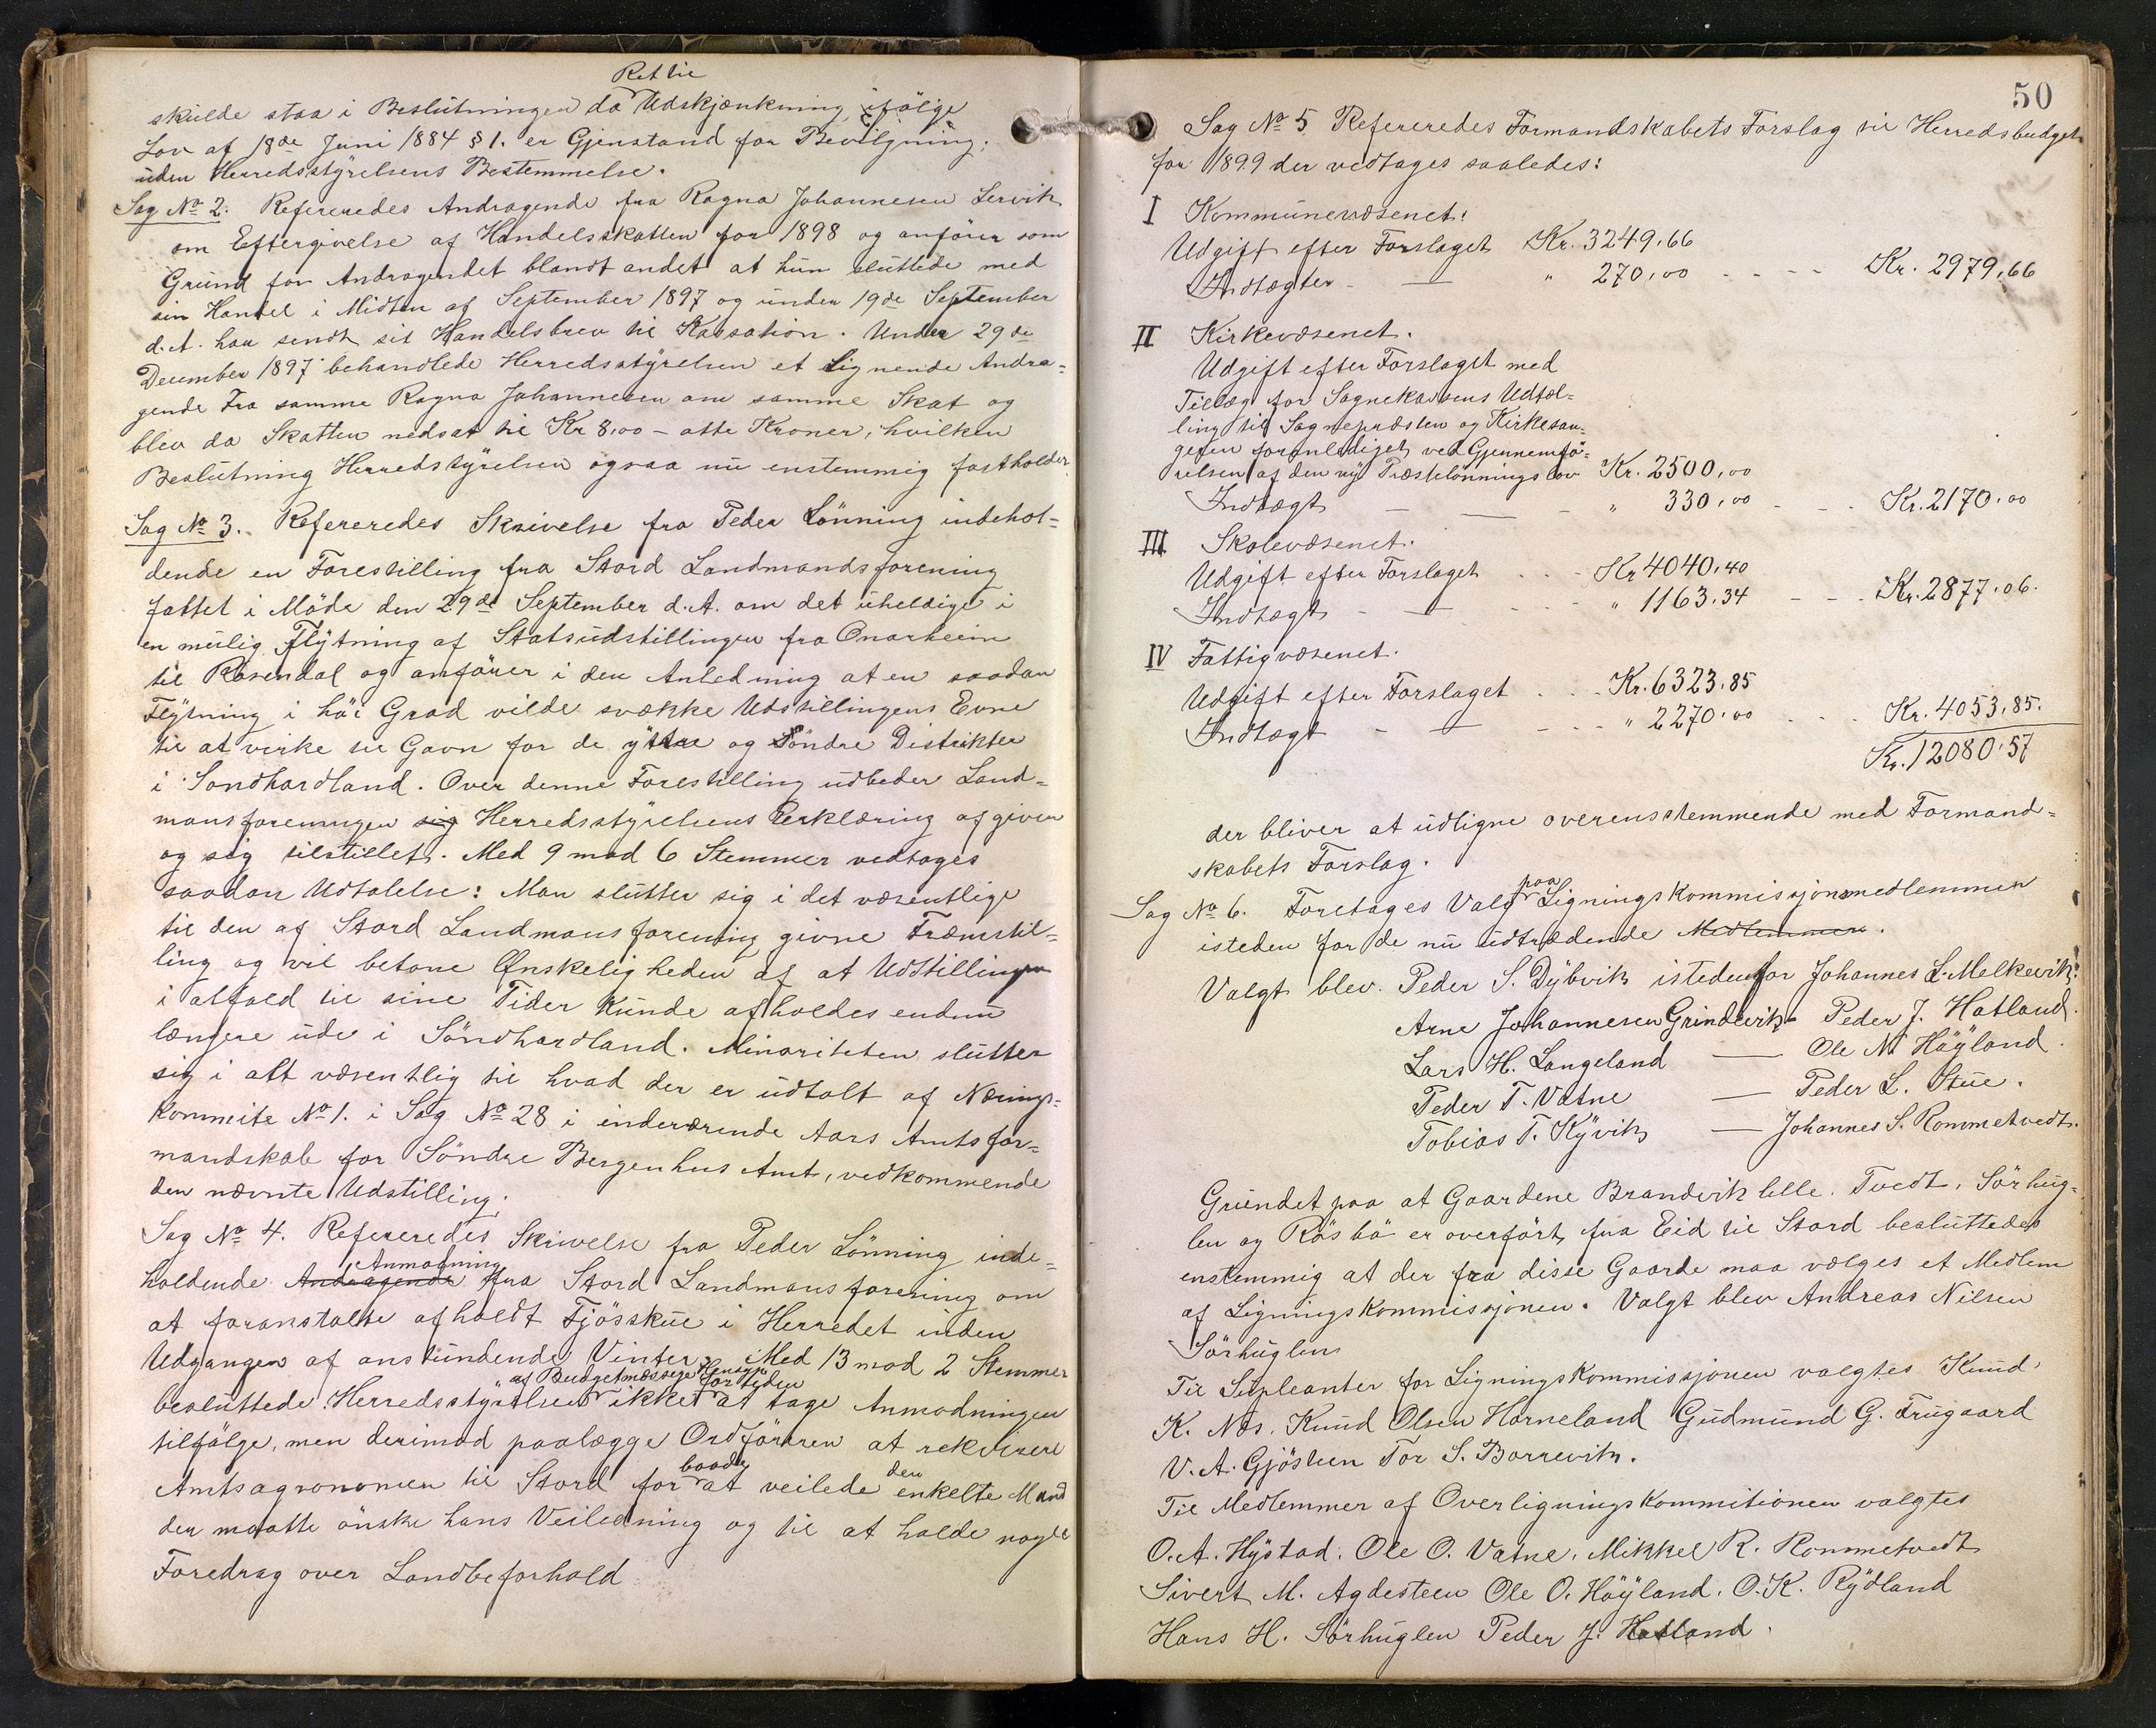 Ret til
skulde staa i Beslutningen da Udskjænkning ifølge
Lov af 18de Juni 1884 § 1. er Gjenstand for Bevilgning,
uden Herredsstyrelsens Bestemmelse.
Sag No 2. Refereredes Andragende fra Ragna Johannesen Lervik
om Eftergivelse af Handelsskatten for 1898 og anfører som
Grund for Andragendet blandt andet at hun sluttede med
sin Handel i Midten af September 1897 og under 19de September
d. A. har sendt sit Handelsbrev til Kassation. Under 29de
December 1897 behandlede Herredsstyrelsen et Lignende Andra=
gende Fra samme Ragna Johannesen om samme Skat og
blev da Skatten nedsat til Kr 8,00 – otte Kroner, hvilken
Beslutning Herredstyrelsen ogsaa nu enstemmig fastholder
Sag No 3. Refereredes Skrivelse fra Peder Lönning indehol=
dende en Forestilling fra Stord Landmandsforening
fattet i Möde den 29de September d. A. om det uheldige i
en mulig Flytning af Statsudstillingen fra Onarheim
til Rosendal og anförer i den Anledning at en saadan
Flytning i höi Grad vilde svække Udstillingens Evne
til at virke til Gavn for de yttre og Söndre Distrikter
i Sondhordland. Over denne Forestilling udbeder Land=
mansforeningen sig Herredsstyrelsens Erklæring afgiven
og sig tilstillet. Med 9 mod 6 Stemmer vedtoges
saadan Udtalelse: Man slutter sig i det væsentlige
til den af Stord Landmansforening givne Fræmstil=
ling og vil betone Ønskeligheden af at Udstillingen
i alfald til sine Tider kunde afholdes endnu
længere ude i Söndhordland. Minoriteten slutter
sig i alt væsentlig til hvad der er udtalt af Nærings=
kommite No 1. i Sag No 28 i inderærende Aars Amtsfor=
mandskab for Söndre Bergenhus Amt, vedkommende
den nævnte Udstilling.
Sag No 4. Refereredes Skrivelse fra Peder Lönning inde=
Anmodning
holdende Andragende fra Stord Landmansforening om
at foranstalte afholdt Fjösskue i Herredet inden
Udgangen af anstundende Vinter. Med 13 mod 2 Stemmer
af Budgetmæssige Hensyn for tiden
besluttede Herredsstyrelsen ikke at tage Anmodningen
tilfölge, men derimod paalægge Ordföreren at rekvirere
baade den
Amtsagronomen til Stord for at veilede enkelte Mand
der maatte önske hans Veiledning og til at holde nogle
Foredrag over Landbeforhold
50
Sag No 5 Refereredes Formandskabets Forslag til Herredsbudget
for 1899 der vedtages saaledes:
I Kommunevæsenet:
Udgift efter Forslaget Kr. 3249,66
Indtægter - — " 270,00 - - - - Kr. 2979,66
II Kirkevæsenet.
Udgift efter Forslaget med
Tillæg for Sognekassens Udtæl=
ling til Sognepræsten og Kirkesan=
geren foranlediget ved Gjennemfö=
relsen af den ny Præstelønningslov Kr. 2500,00
Indtægt - — - " 330,00 - - - Kr. 2170,00
III Skolevæsenet.
Udgift efter Forslaget . . . Kr 4040,40
Indtægt - — - - " 1163,34 - - - Kr. 2877,06.
IV Fattigvæsenet.
Udgift efter Forslaget . . . Kr. 6323,85
Indtægt - — - - " 2270,00 . . . Kr. 4053,85.
Kr. 12080,57
der bliver at udligne overensstemmende med Formand=
skabets Forslag.
paa
Sag No 6. Foretages Valg Ligningskommissjonsmedlemmer
isteden for de nu udtrædende Medlemmer.
Valgt blev. Peder S. Dybvik istedenfor Johannes L. Melkevik.
Arne Johannesen Grindevik - Peder J. Hatland.
Lars H. Langeland — Ole N. Høyland.
Peder T. Vatne — Peder L. Stue.
Tobias T. Kyvik — Johannes S. Rommetvedt.
Grundet paa at Gaardene Brandvik lille, Tvedt, Sörhug=
len og Rösbö er overfört fra Eid til Stord besluttedes
enstemmig at der fra disse Gaarde maa vælges et Medlem
af Ligningskommissjonen. Valgt blev Andreas Nilsen
Sörhuglen
Til Supleanter for Ligningskommissjonen valgtes Knud
K. Næs, Knud Olsen Horneland Gudmund G. Frugaard
V. A. Gjösteen Tor S. Borrevik.
Til Medlemmer af Overligningskommitionen valgtes
O. A. Hystad. Ole O. Vatne. Mikkel R. Rommetvedt
Sivert M. Agdesteen Ole O. Höyland. O. K. Rydland
Hans H. Sörhuglen Peder J. Hatland.